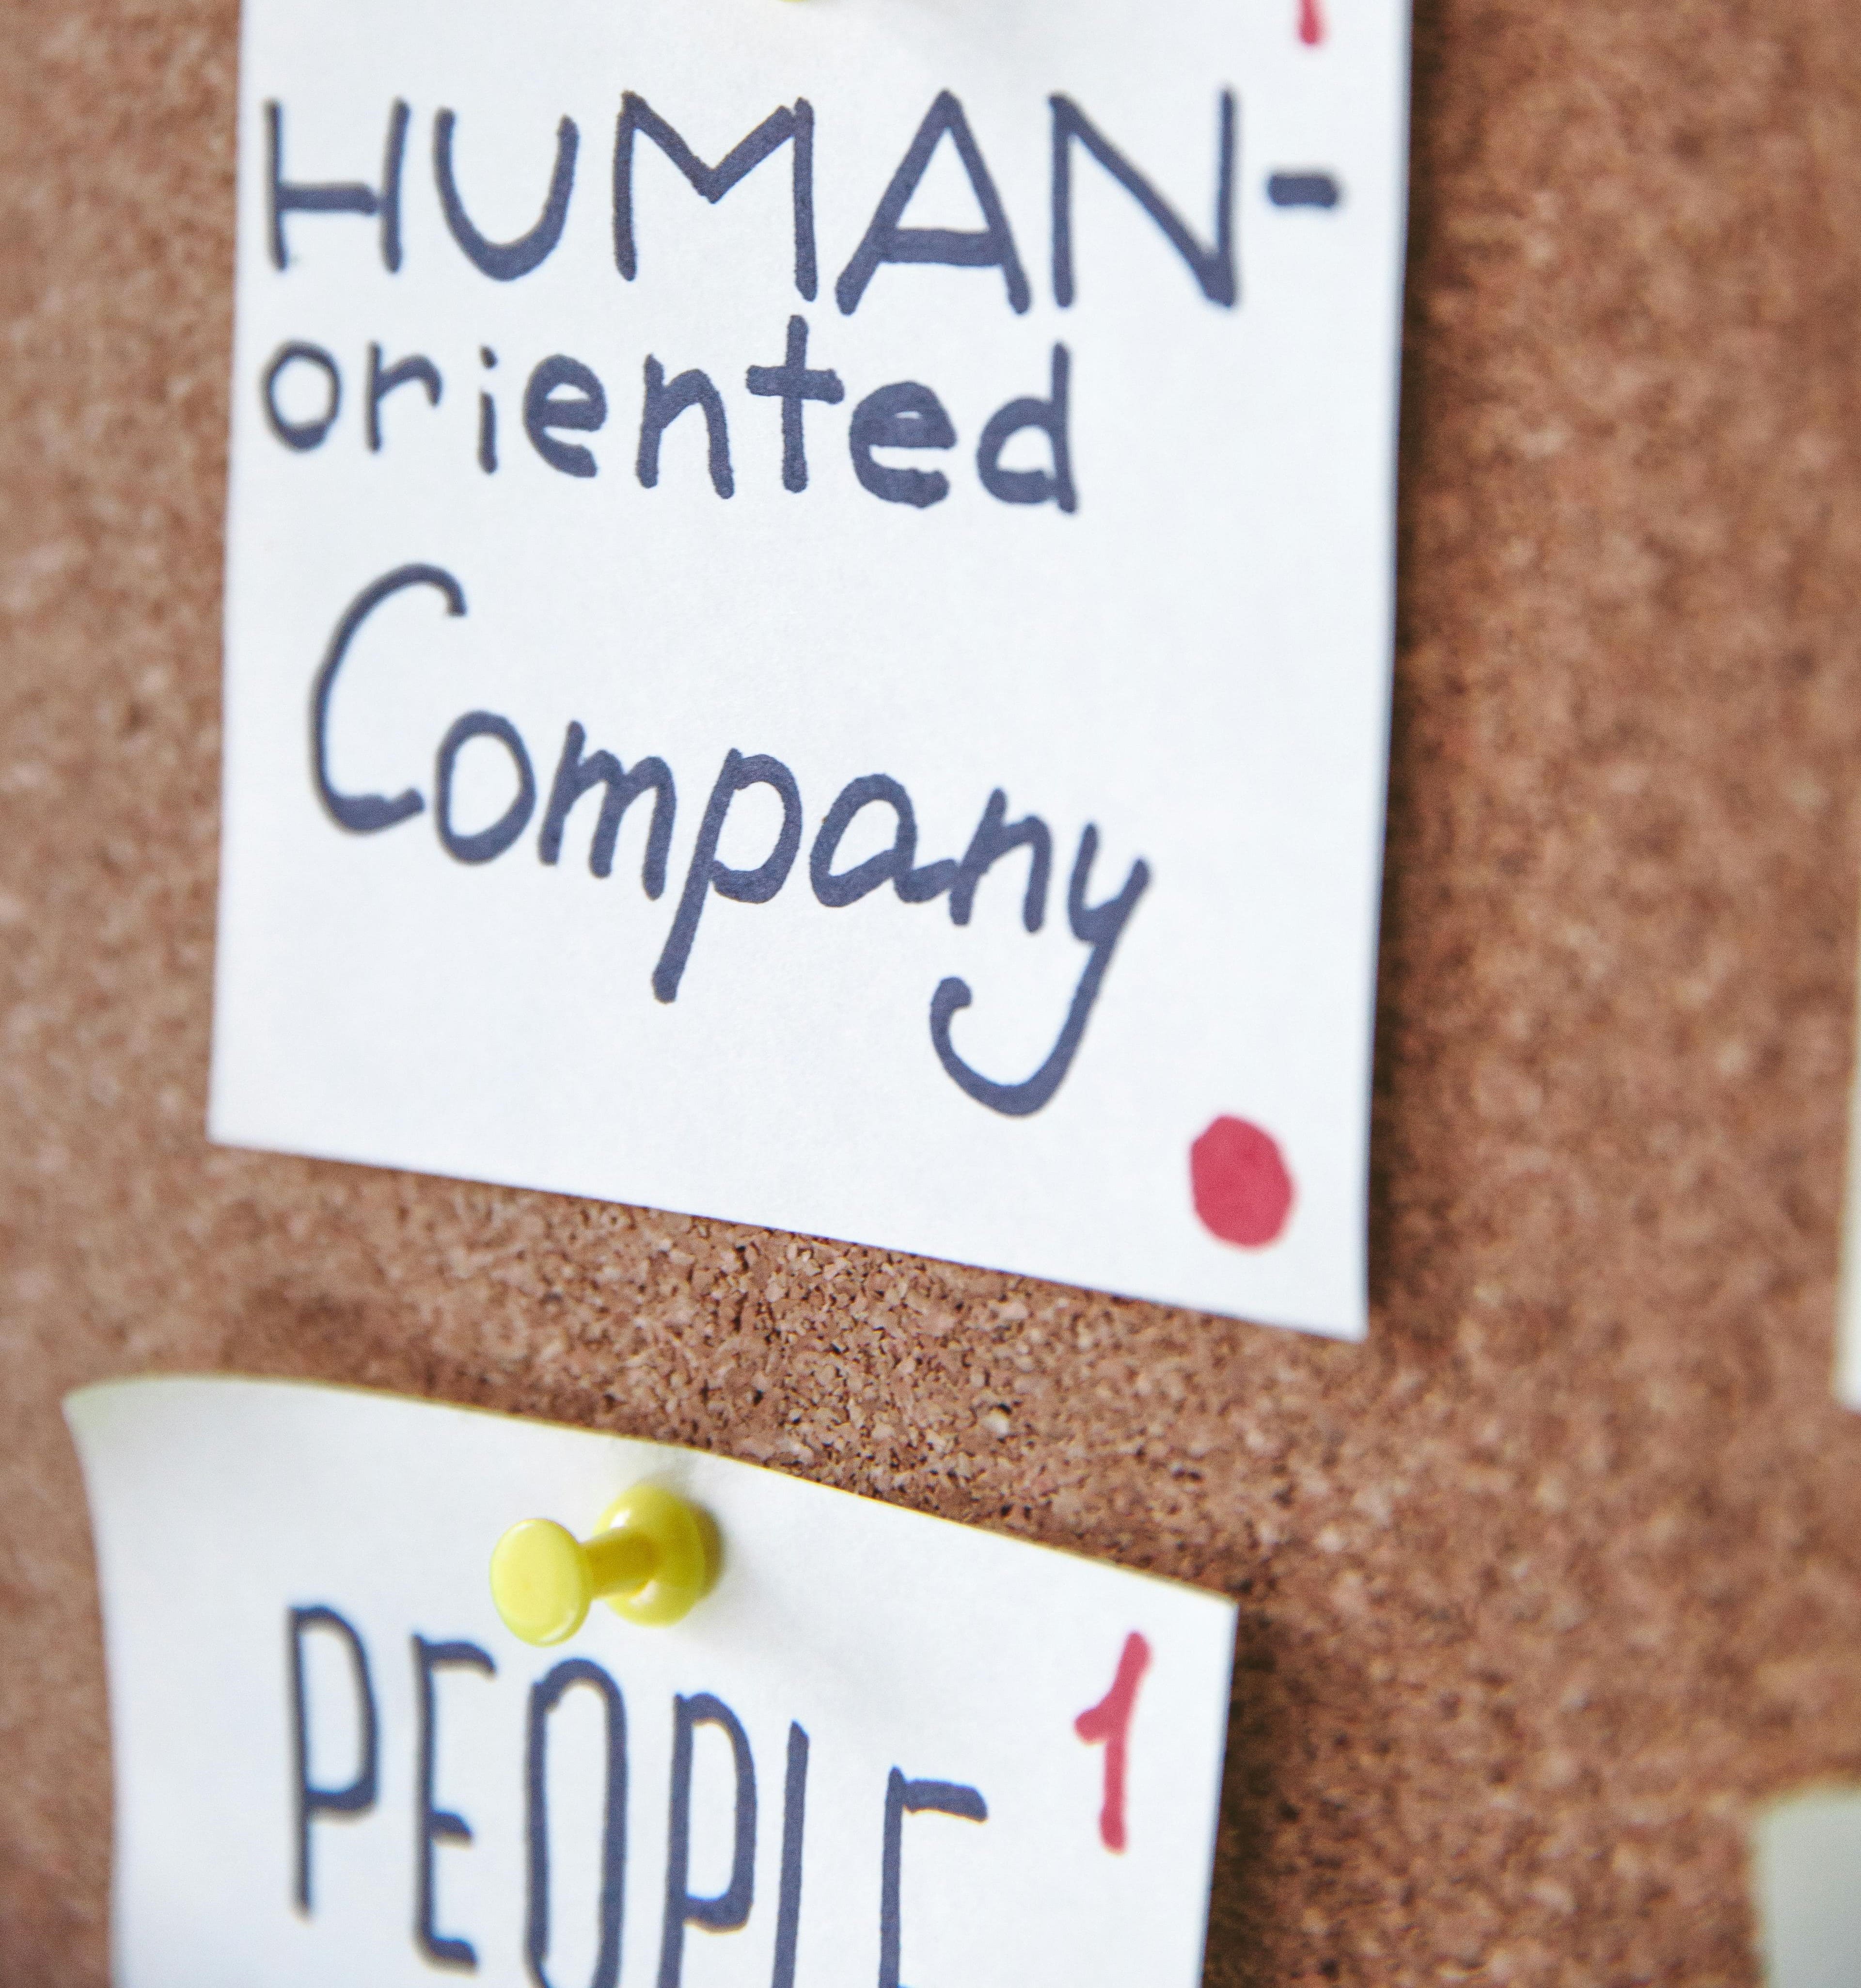 HUMAN-
oriented
Company
1
PEOPLE